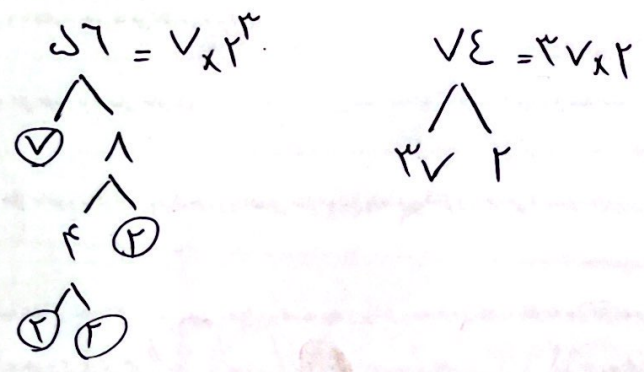 ۵۶ = ۷ × ۲^۳
۷ ۸
۴ ۲
۲ ۲
۷۴ = ۳۷ × ۲
۳۷ ۲